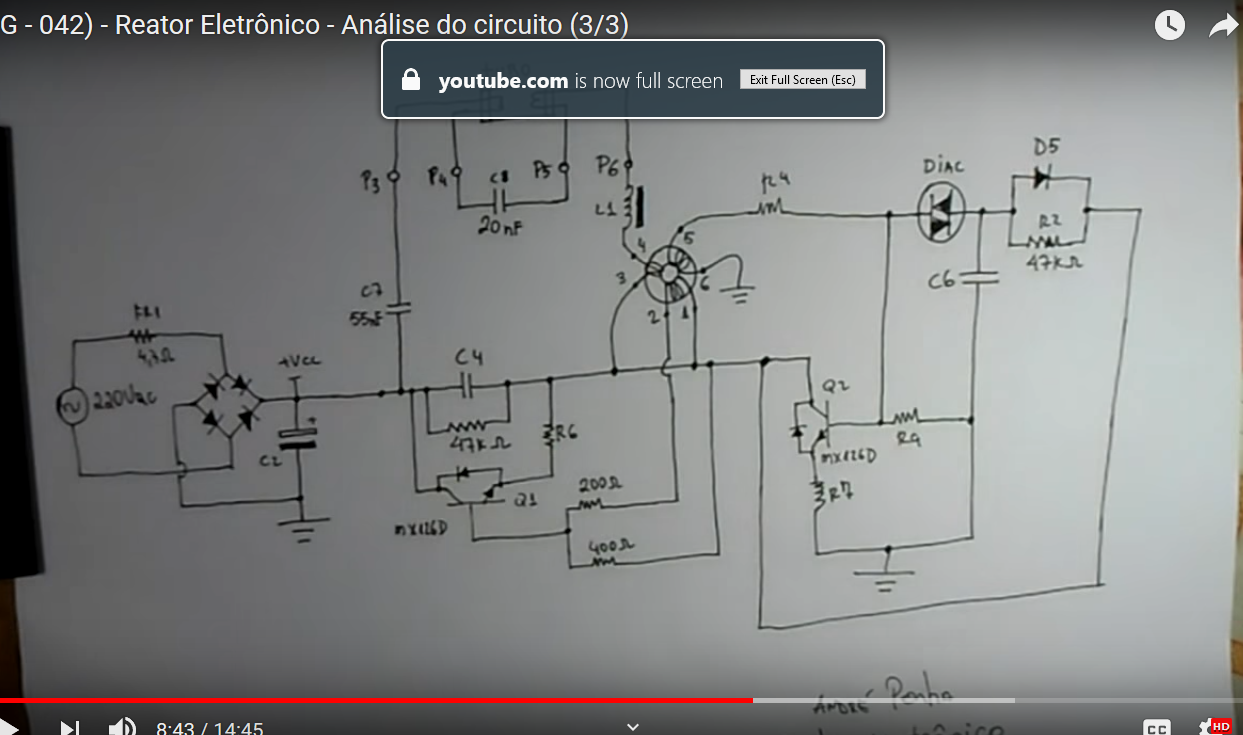 G - 042) - Reator Eletrônico - Análise do circuito (3/3)
youtube.com is now full screen
Exit Full Screen (Esc)
P3
P4
C8
P5
20nF
P6
L1
4
5
3
6
2
1
R4
DiAC
D5
R2
47KΩ
C6
C7
55nF
4,7Ω
220Vac
+Vcc
+
C2
C4
47KΩ
R6
Q1
mx126D
200Ω
400Ω
Q2
mx126D
R7
R9
ANDRÉ Penha
8:43 / 14:45
CC
HD